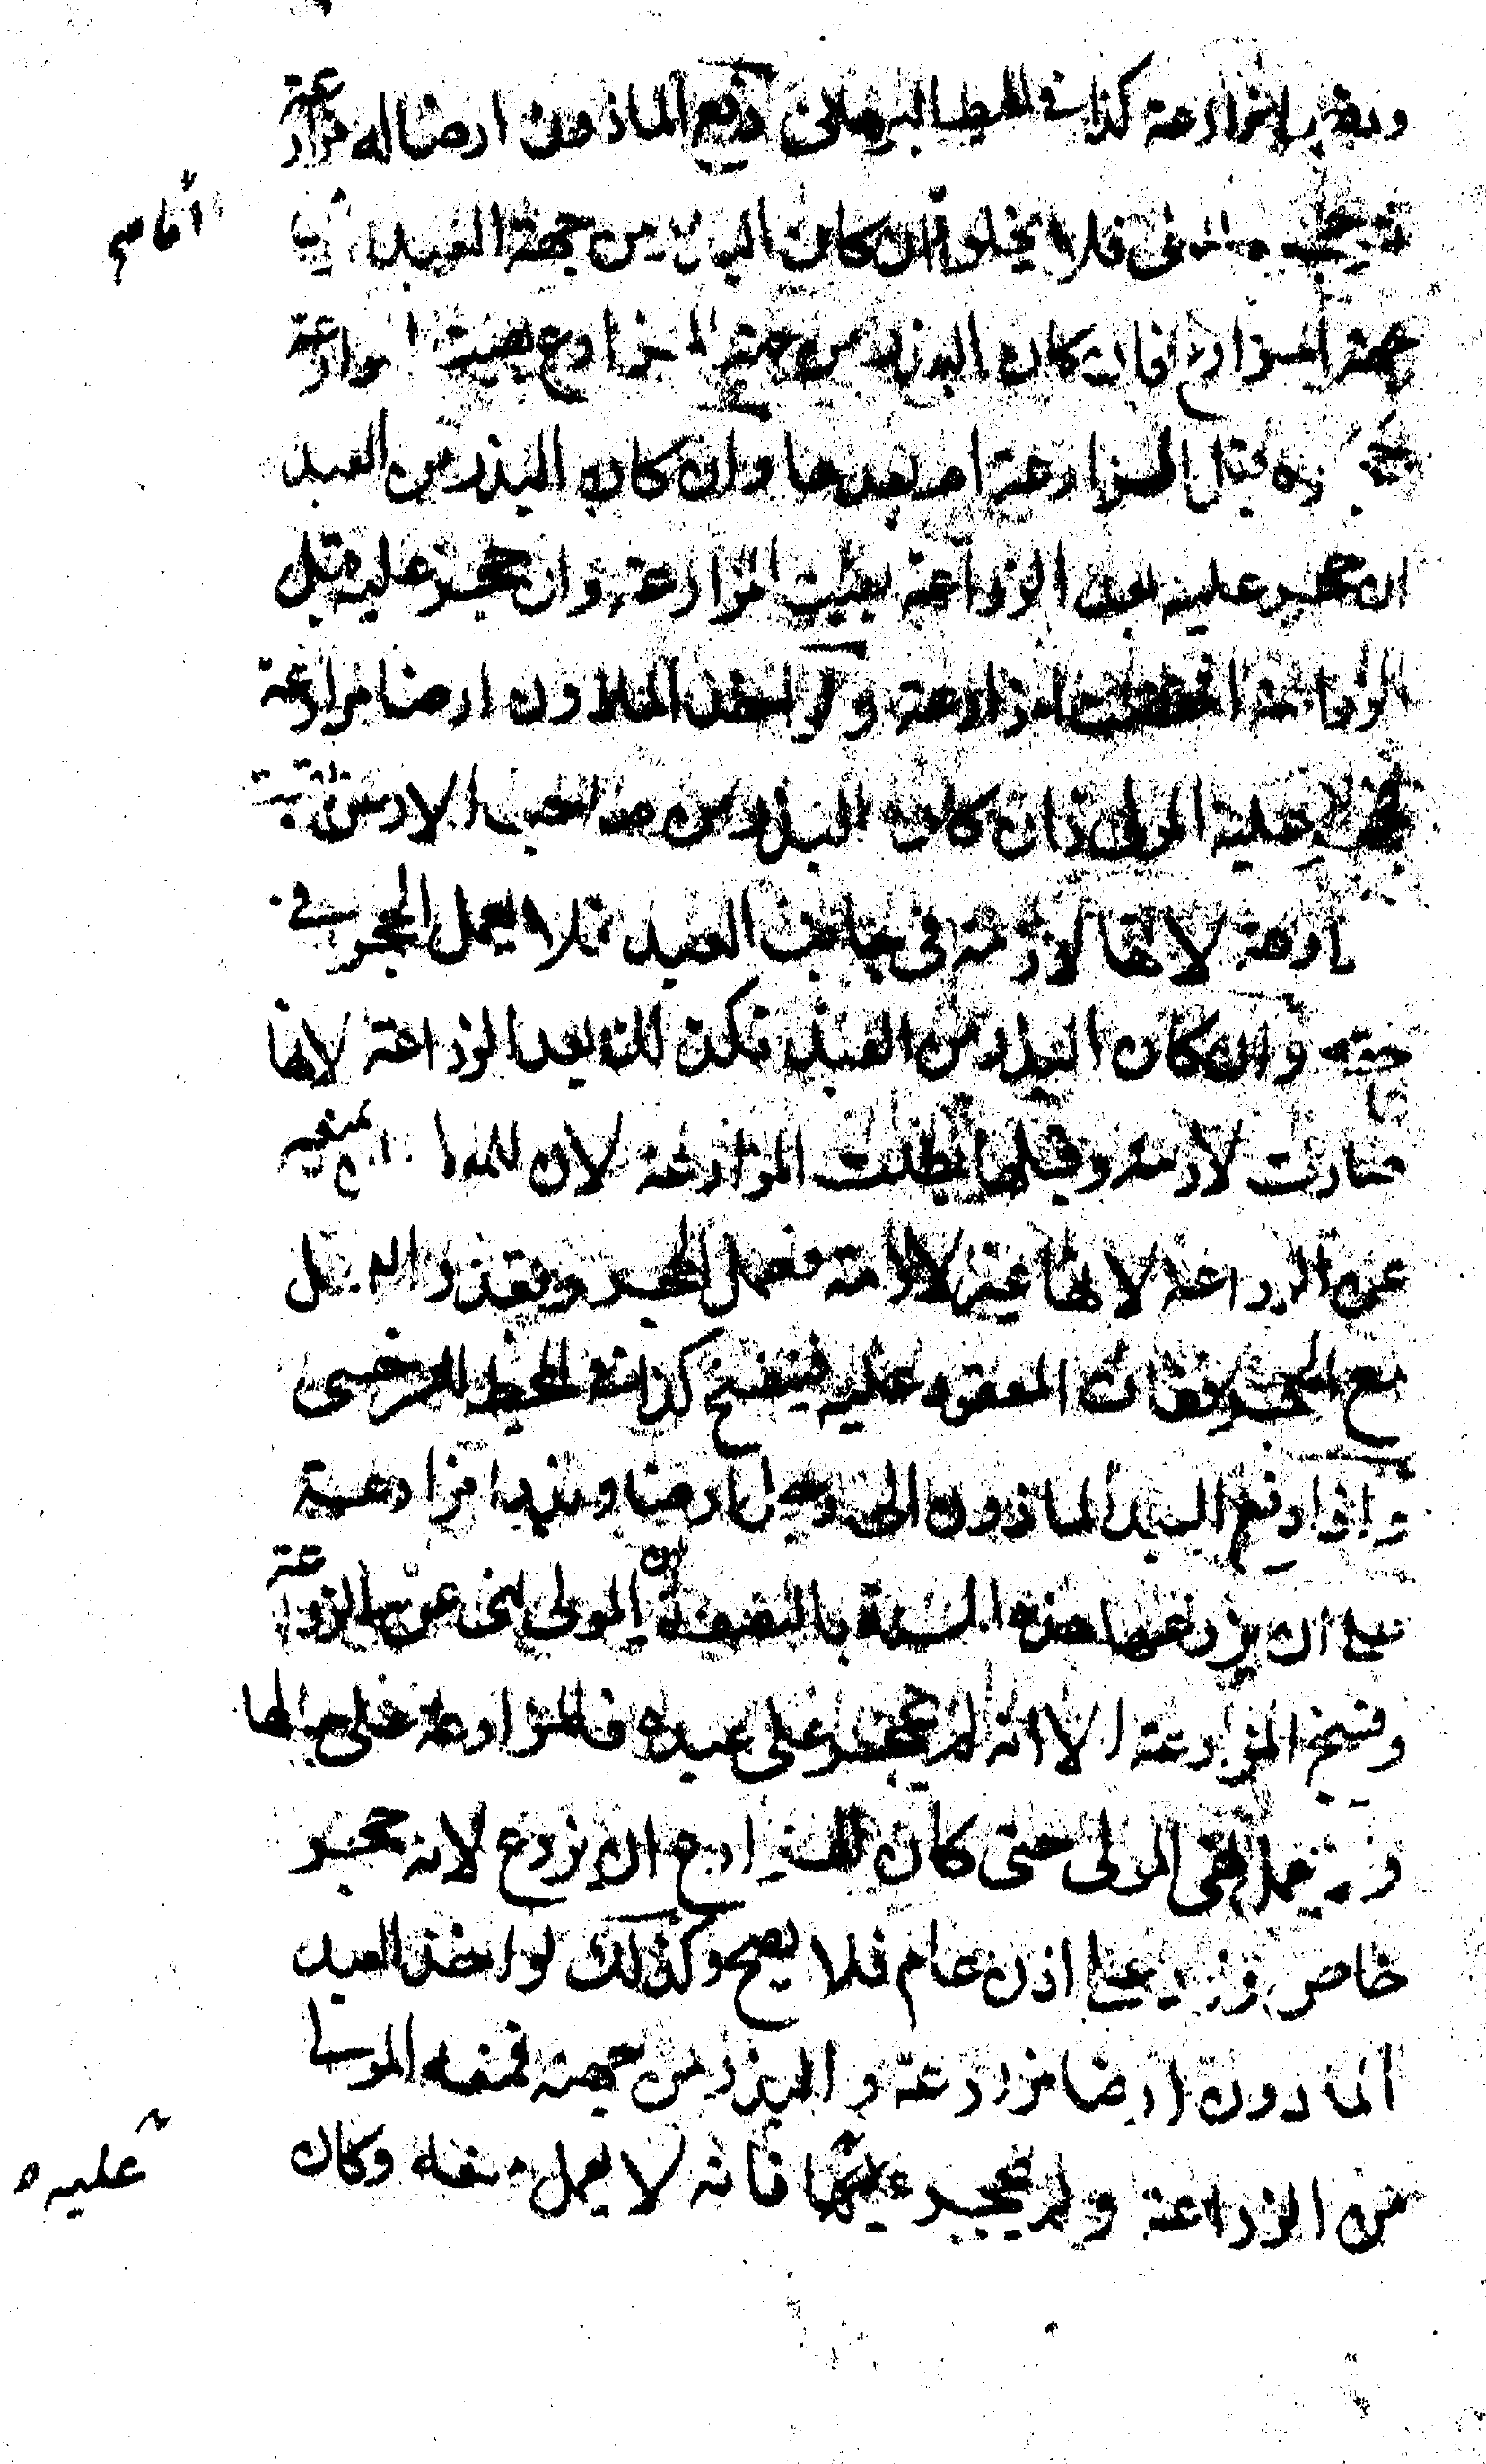 وبطر المزارعة كذا في المحيط البرهاني دفع الماذون ارضا له مزارعة
ثم حجر المولى فلا يخلو ان كان البذر من جهة العبد
جهة المزارع فان كان البذر من جهة المزارع بقيت المزارعة
حجره قبل المزارعة او بعدها وان كان البذر من العبد
ان حجر عليه بعد الزراعة بقيت المزارعة وان حجر عليه قبل
الزراعة انتقضت المزارعة ولو اخذ الماذون ارضا مزارعة
فحجر عليه المولى فان كان البذر من صاحب الارض بقيت
المزارعة لانها لازمة في جانب العبد فلا يعمل الحجر في
حقه وان كان البذر من العبد فكذلك بعد الزراعة لانها
صارت لازمة وقبلها بطلت المزارعة لان للمولى منعه
عن الزراعة لانها غير لازمة فعمل الحجر وبقدر العمل
مع الحجر فات المعقود عليه فينفسخ كذا في المحيط للسرخسي
واذا دفع العبد الماذون الى رجل ارضا وبذرا مزارعة
على ان يزرعها هذه السنة بالنصف ثم ان المولى نهى عن الزراعة
وفسخ المزارعة الا انه لم يحجر على عبده فالمزارعة على حالها
ولم يعمل نهي المولى حتى كان للمزارع ان يزرع لانه حجر
خاص ورد على اذن عام فلا يصح وكذلك لو اخذ العبد
الماذون ارضا مزارعة والبذر من جهته فمنعه المولى
من الزراعة ولم يحجر عليه فانه لا يعمل منعه وكان
عليه